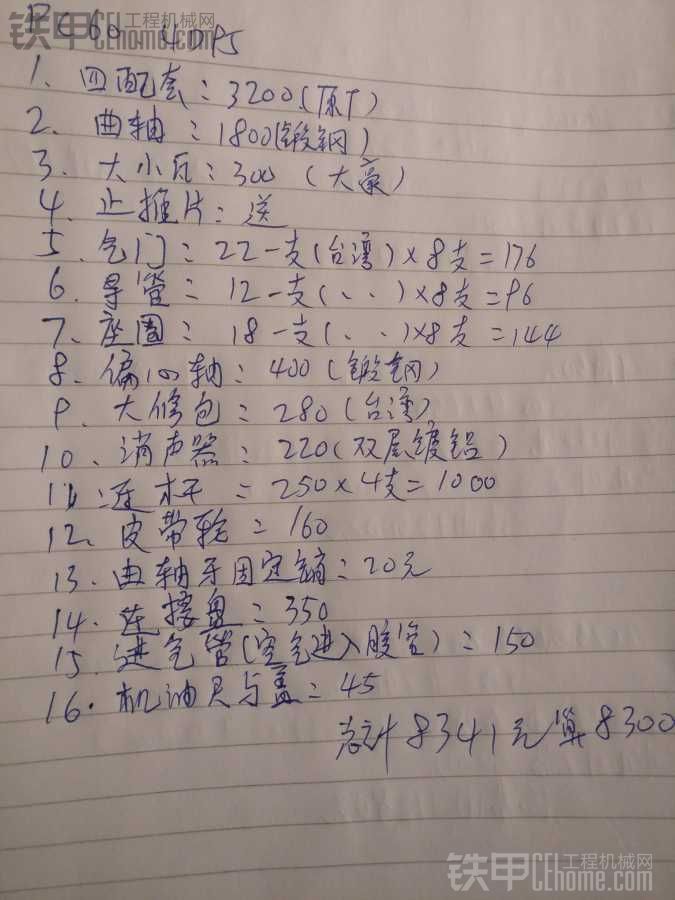 铁甲 工程机械网
CEhome.com
PC60 4D95
1、四配套：3200（原厂）
2、曲轴：1800（锻钢）
3、大小瓦：300（大豪）
4、止推片：送
5、气门：22一支（台湾）×8支=176
6、导管：12一支（、、）×8支=96
7、座圈：18一支（、、）×8支=144
8、偏心轴：400（锻钢）
9、大修包：280（台湾）
10、消声器：220（双层镀铝）
11、连杆=250×4支=1000
12、皮带轮=160
13、曲轴牙固定销：20元
14、连接盘：350
15、进气管（空气进入胶管）=150
16、机油尺与盖：45
总计8341元算8300
铁甲 工程机械网
CEhome.com